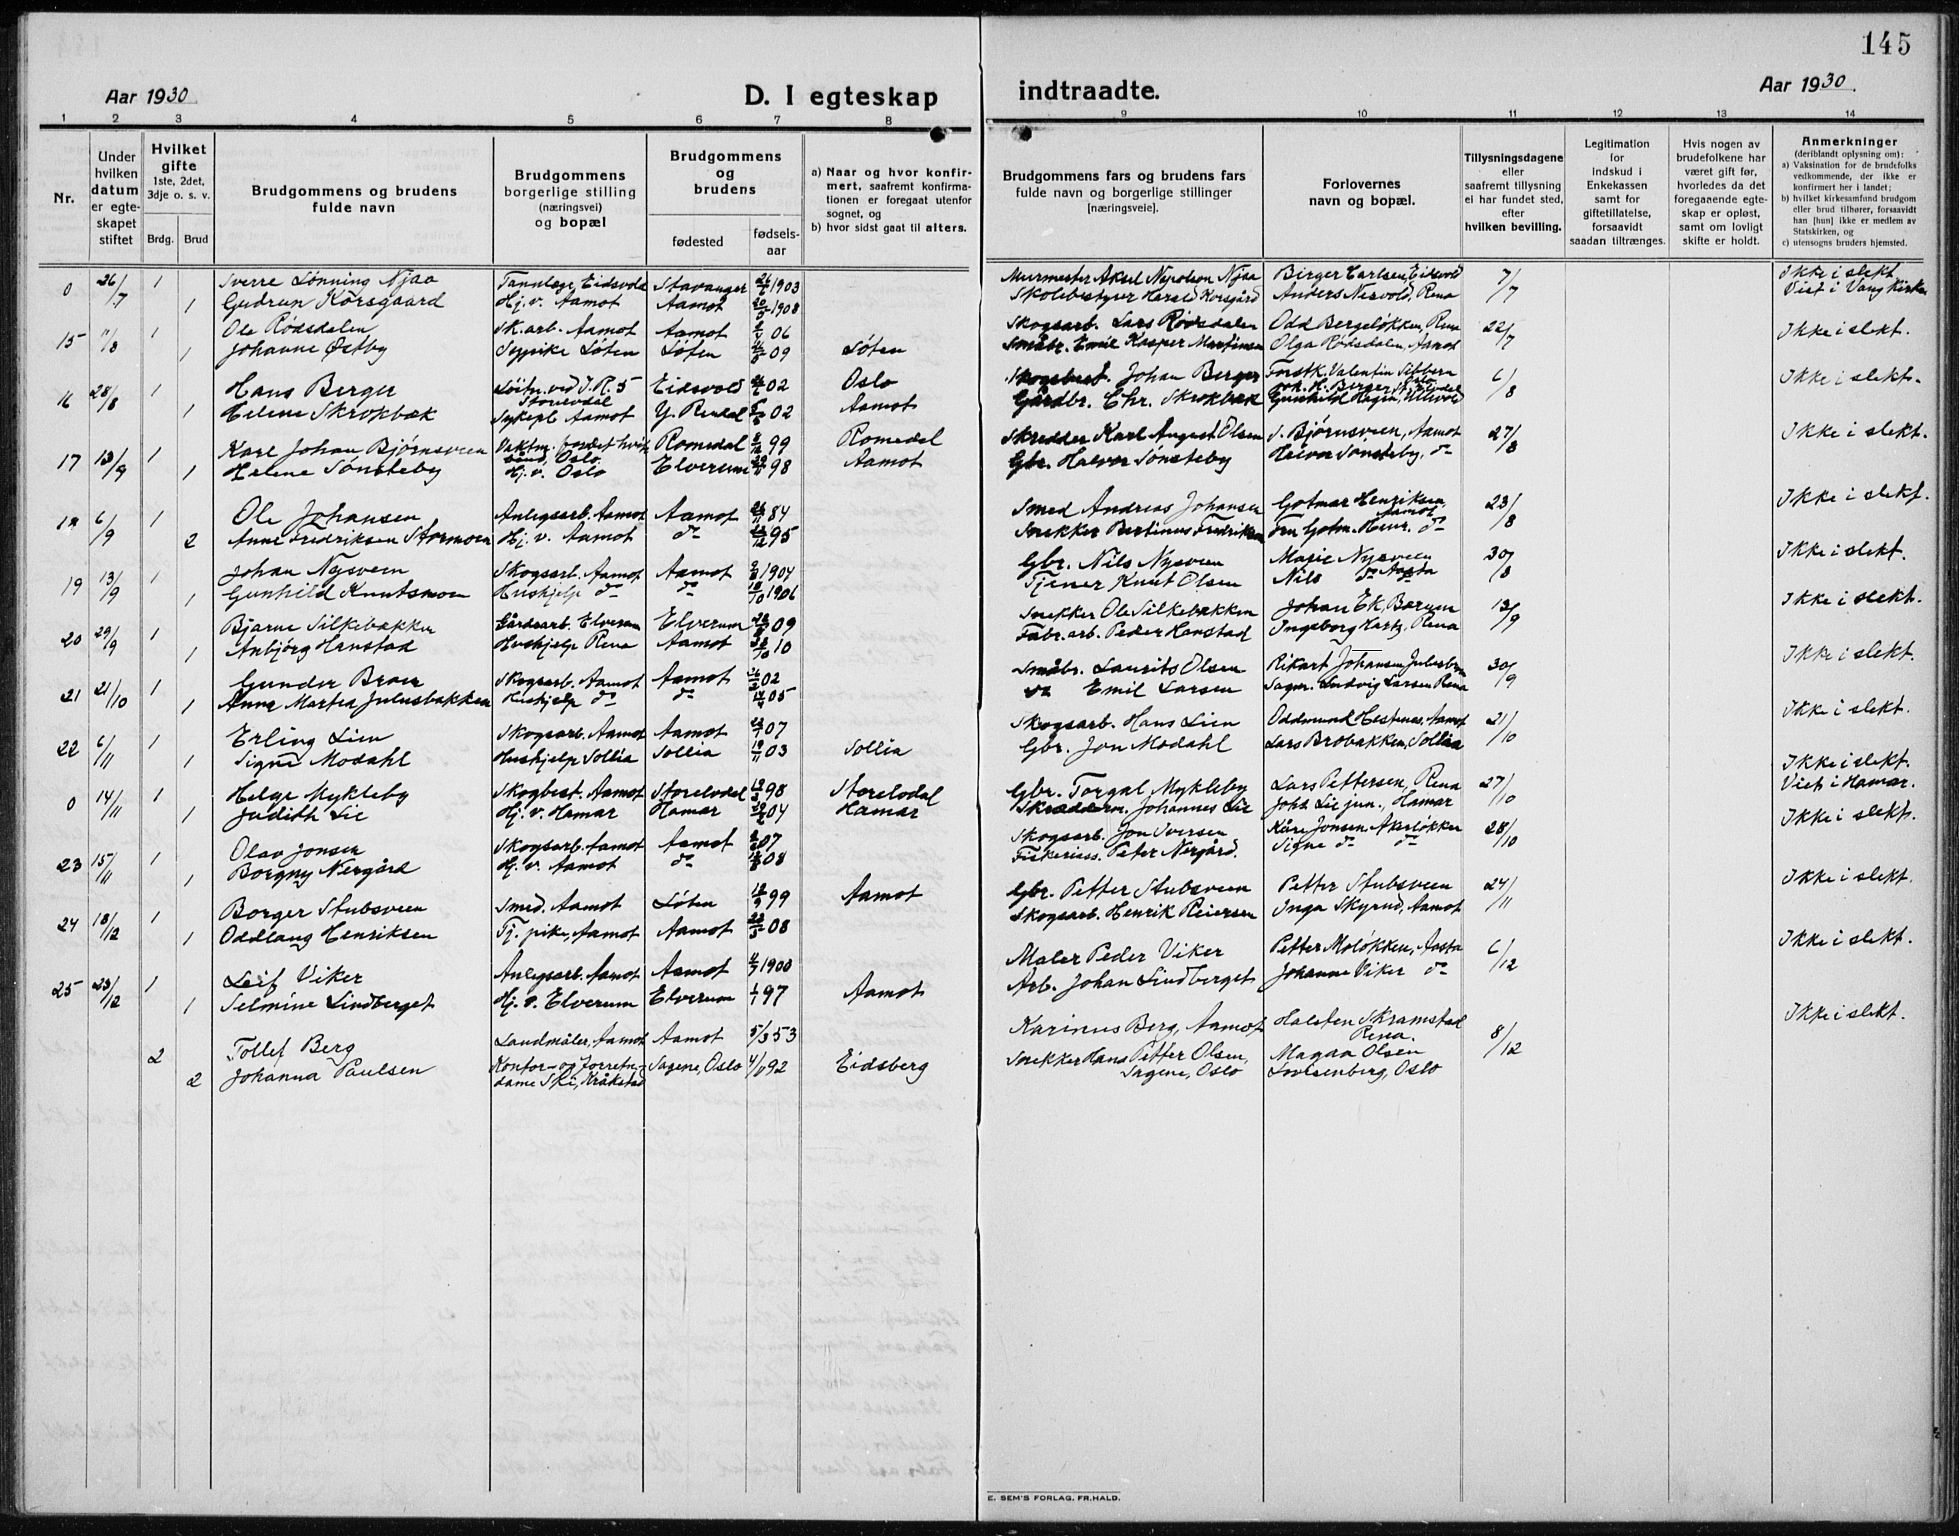 145
Aar 1930
D. I egteskap
indtraadte.
Aar 1930.
1 2 3 4 5 6 7 8 9 10 11 12 13 14
Nr.
Under hvilken datum er egteskapet stiftet
Hvilket gifte
1ste, 2det, 3dje o. s. v.
Brdg. Brud
Brudgommens og brudens fulde navn
Brudgommens borgerlige stilling (næringsvei) og bopæl
Brudgommens og brudens
fødested
fødselsaar
a) Naar og hvor konfirmert, saafremt konfirmationen er foregaat utenfor sognet, og
b) hvor sidst gaat til alters.
Brudgommens fars og brudens fars fulde navn og borgerlige stillinger [næringsveie].
Forlovernes navn og bopæl.
Tillysningsdagene eller saafremt tillysning ei har fundet sted, efter hvilken bevilling.
Legitimation for indskud i Enkekassen samt for giftetillatelse, forsaavidt saadan tiltrænges.
Hvis nogen av brudefolkene har været gift før, hvorledes da det foregaaende egteskap er opløst, samt om lovlig skifte er holdt.
Anmerkninger
(deriblandt oplysning om):
a) Vaksination for de brudefolks vedkommende, der ikke er konfirmert her i landet;
b) hvilket kirkesamfund brudgom eller brud tilhører, forsaavidt han [hun] ikke er medlem av Statskirken, og
c) utensogns bruders hjemsted.
0 26/7 1 Sverre Lønning Njaa Tannlæge, Eidsvold Stavanger 1903 Murmester Aksel Njaa Birger Carlsen, Eidsvold 7/7 Ikke i slekt
1 Gudrun Korsgaard Hj. v. Aamot Aamot 1908 Skolebestyrer Harald Korsgård Anders Nesvold, Rena Viet i Vang Kirke
15 11/8 1 Ole Rødsdalen Sk. arb. Aamot Aamot 06 Skogsarb. Lars Rødsdalen Odd Bergeløkken, Rena 22/7 Ikke i slekt.
1 Johanne Østby Sypike Løten Løten 09 Løten Småbr. Emil Kasper Martinsen Olga Rødsdalen, Aamot
16 28/8 1 Hans Berger Løitn. ved I. R. 5 Storelvdal Eidsvold 02 Oslo Skogbest. Johan Berger Forstk. Valentin Sibbern Oslo 6/8 Ikke i slekt.
1 Helene Skrokbæk Sykepl. Aamot Y. Rendal 02 Aamot Gårdbr. Chr. Skrokbæk Gunhild Hagen, Ullevold
17 13/9 1 Karl Johan Bjørnsveen Oslo Romedal 99 Romedal Skredder Karl August Olsen S. Bjørnsveen, Aamot 27/8 Ikke i slekt.
1 Helene Sønsteby Hj. v. Oslo Elverum 98 Aamot Gbr. Halvor Sønsteby Halvor Sønsteby, do
18 6/9 1 Ole Johansen Anlegsarb. Aamot Aamot 84 Smed Andreas Johansen Gotmar Henriksen, Aamot 23/8 Ikke i slekt.
2 Anne Fredriksen Stormoen Hj. v. Aamot do 95 Snekker Bertinus Fredriksen Fru Gotm. Henr. do
19 13/9 1 Johan Nysveen Skogsarb. Aamot Aamot 1904 Gbr. Nils Nysveen Marie Nysveen 30/8 Ikke i slekt.
1 Gunhild Knutsmoen Hushjelp do do 1906 Tjener Knut Olsen Nils do Aasta
20 29/9 1 Bjarne Silkebækken Gårdsarb. Elverum Elverum 09 Snekker Ole Silkebækken Johan Ek, Bærum 13/9 Ikke i slekt.
1 Anbjørg Hanstad Hushjelp Rena Aamot 10 Fabr. arb. Peder Hanstad Ingeborg Hartz, Rena
21 21/10 1 Gunder Braen Skogsarb. Aamot Aamot 02 Småbr. Laurits Olsen Rikart Johansen, 30/9 Ikke i slekt.
1 Anna Martea Julusbakken Hushjelp do do 05 do Emil Larsen Sagm. Ludvig Larsen Rena
22 6/11 1 Erling Lien Skogsarb. Aamot Aamot 07 Skogsarb. Hans Lien Oddmund Hestnes, Aamot 21/10 Ikke i slekt.
1 Signe Modahl Hushjelp Sollia Sollia 03 Sollia Gbr. Jon Modahl Lars Brobakken, Sollia
0 14/11 1 Helge Mykleby Skogbest. Aamot Storelvdal 98 Storelvdal Gbr. Torgal Mykleby Lars Pettersen, Rena 27/10 Ikke i slekt.
1 Judith Lie Hj. v. Hamar Hamar 04 Hamar Skræderm. Johannes Lie Johs. Lie jun., Hamar Viet i Hamar.
23 15/11 1 Olav Jonsen Skogsarb. Aamot Aamot 07 Skogsarb. Jon Iversen Kåre Jonsen, Akeløkken 28/10 Ikke i slekt.
1 Borgny Nergård Hj. v. Aamot do 08 Fiskeriass. Peter Nergård. Signe do do
24 18/12 1 Borger Stubsveen Smed. Aamot Løten 99 Aamot Gbr. Petter Stubsveen Petter Stubsveen 24/11 Ikke i slekt.
1 Oddlaug Henriksen Tj. pike, Aamot Aamot 08 Skogsarb. Henrik Reiersen Inga Skyrud, Aamot
25 23/12 1 Leif Viker Anlegsarb. Aamot Aamot 1900 Maler Peder Viker Petter Moløkken, Aasta 6/12 Ikke i slekt.
1 Selmine Lindberget Hj. v. Elverum Elverum 1/1 97 Aamot Arb. Johan Lindberget Johanne Viker do
2 Tollef Berg Landmåler, Aamot Aamot 5/3 53 Karinus Berg, Aamot Halsten Skramstad Rena. 8/12 Ikke i slekt.
2 Johanna Paulsen Kontor- og forretn.- dame Ski, Kråkstad Sagene, Oslo 92 Eidsberg Snekker Hans Petter Olsen, Sagene, Oslo Magda Olsen Lovisenberg, Oslo
E. SEM'S FORLAG. FR.HALD.